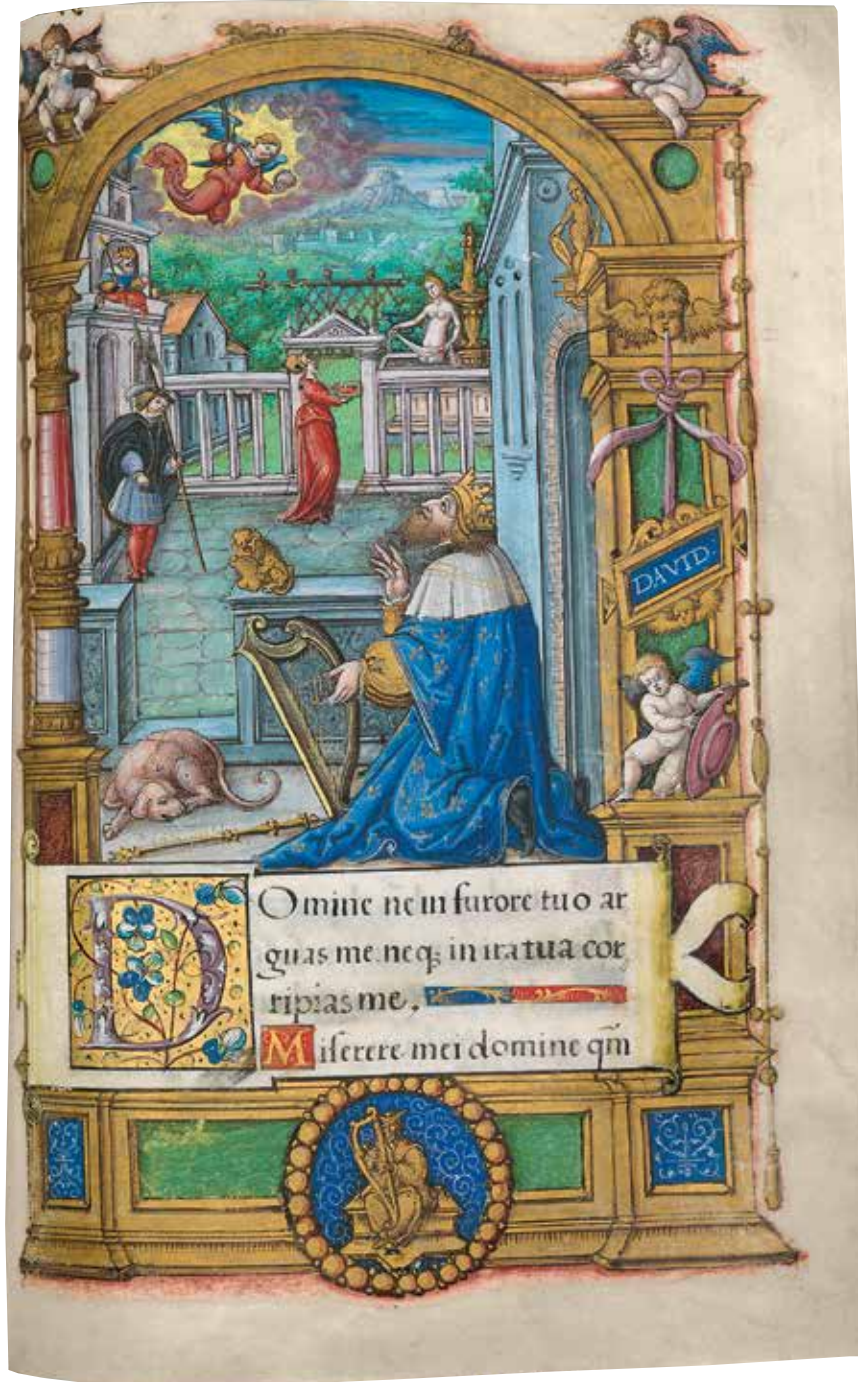 DAVID·
Omine ne in furore tuo ar
guas me neq; in ira tua cor
ripias me.
Miserere mei domine qm̄